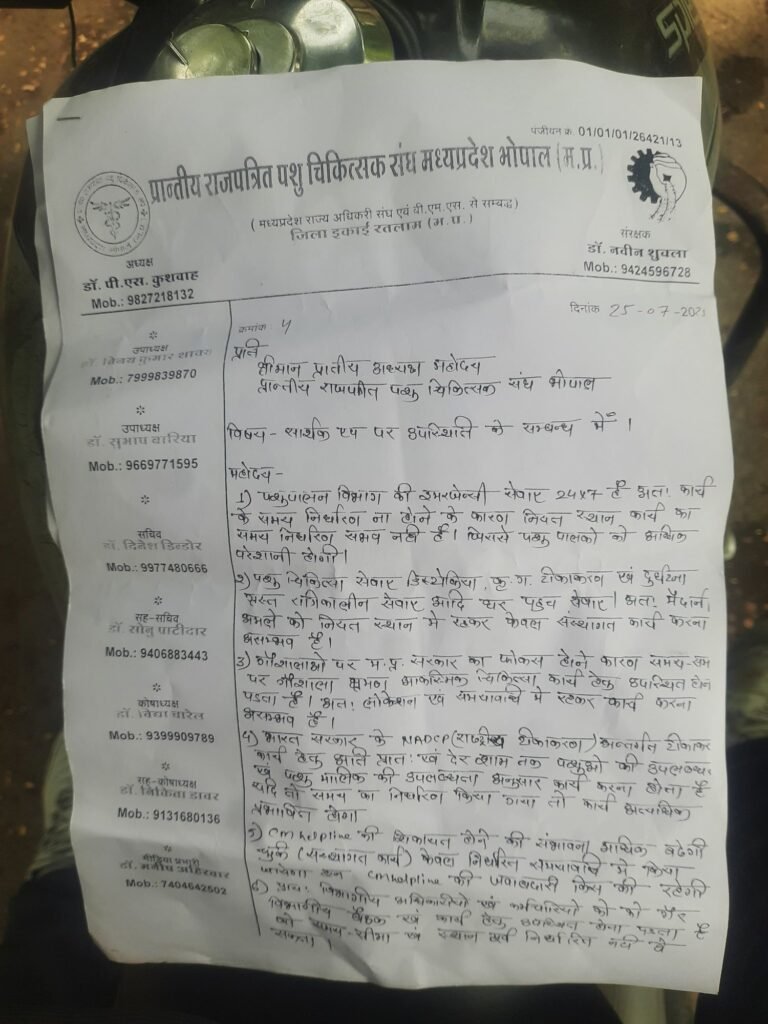 पंजीयन क्र. 01/01/01/26421/13
प्रान्तीय राजपत्रित पशु चिकित्सक संघ मध्यप्रदेश भोपाल (म.प्र.)
(मध्यप्रदेश राज्य अधिकरी संघ एवं वी.एम.एस. से सम्बद्ध)
जिला इकाई रतलाम (म.प्र.)
अध्यक्ष
डॉ. पी.एस. कुशवाह
Mob.: 9827218132
संरक्षक
डॉ. नवीन शुक्ला
Mob.: 9424596728
उपाध्यक्ष
डॉ. विजय कुमार
Mob.: 7999839870
उपाध्यक्ष
डॉ. सुभाष बारिया
Mob.: 9669771595
सचिव
डॉ. दिनेश डिन्डोर
Mob.: 9977480666
सह-सचिव
डॉ. सोनु पाटीदार
Mob.: 9406883443
कोषाध्यक्ष
डॉ. विद्या बारेल
Mob.: 9399909789
सह-कोषाध्यक्ष
डॉ. निकिता डावर
Mob.: 9131680136
मीडिया प्रभारी
डॉ. मनीष अहिरवार
Mob.: 7404642502
क्रमांक 4
दिनांक 25-07-202
प्रति
श्रीमान प्रांतीय अध्यक्ष महोदय
प्रान्तीय राजपत्रित पशु चिकित्सक संघ भोपाल
विषय - सार्थक एप पर उपस्थिति के सम्बन्ध में ।
महोदय -
1) पशुपालन विभाग की इमरजेन्सी सेवाए 24x7 है अतः कार्य
के समय निर्धारण ना होने के कारण नियत स्थान कार्य का
समय निर्धारण संभव नहीं है । जिससे पशु पालको को आर्थिक
परेशानी होगी ।
2) पशु चिकित्सा सेवाए डिस्टोकिया, कृ.ग. टीकाकरण एवं दुर्घटना
ग्रस्त रात्रिकालीन सेवाए आदि घर पहुच सेवाए । अतः मैदानी
अमले को नियत स्थान मे रखकर केवल संस्थागत कार्य करना
असम्भव है ।
3) गौशालाओ पर म.प्र. सरकार का फोकस होने कारण समय-सम
पर गौशाला भ्रमण आकस्मिक चिकित्सा कार्य हेतु उपस्थित होन
पडता है । अतः लोकेशन एवं समयावधि मे रहकर कार्य करना
असम्भव है ।
4) भारत सरकार के NADCP (राष्ट्रीय टीकाकरण) अन्तर्गत टीकाकर
कार्य हेतु अति प्रातः एवं देर शाम तक पशुओ की उपलब्धता
एवं पशु मालिक की उपलब्धता अनुसार कार्य करना होता है
यदि तो समय का निर्धारण किया गया तो कार्य अत्यधिक
प्रभावित होगा
5) cmhelpline की शिकायत होने की संभावना अधिक बढेगी
चुकि (संस्थागत कार्य) केवल निर्धारित समयावधि में किया
जायेगा cmhelpline की जवाबदारी किस की रहेगी
6) प्रायः विभागीय अधिकारियो एवं कर्मचारियो को को गैर
विभागीय बैठक एवं कार्य हेतु उपस्थित होना पडता है
जो समय-सीमा एवं स्थान निर्धारित नही
सकता ।